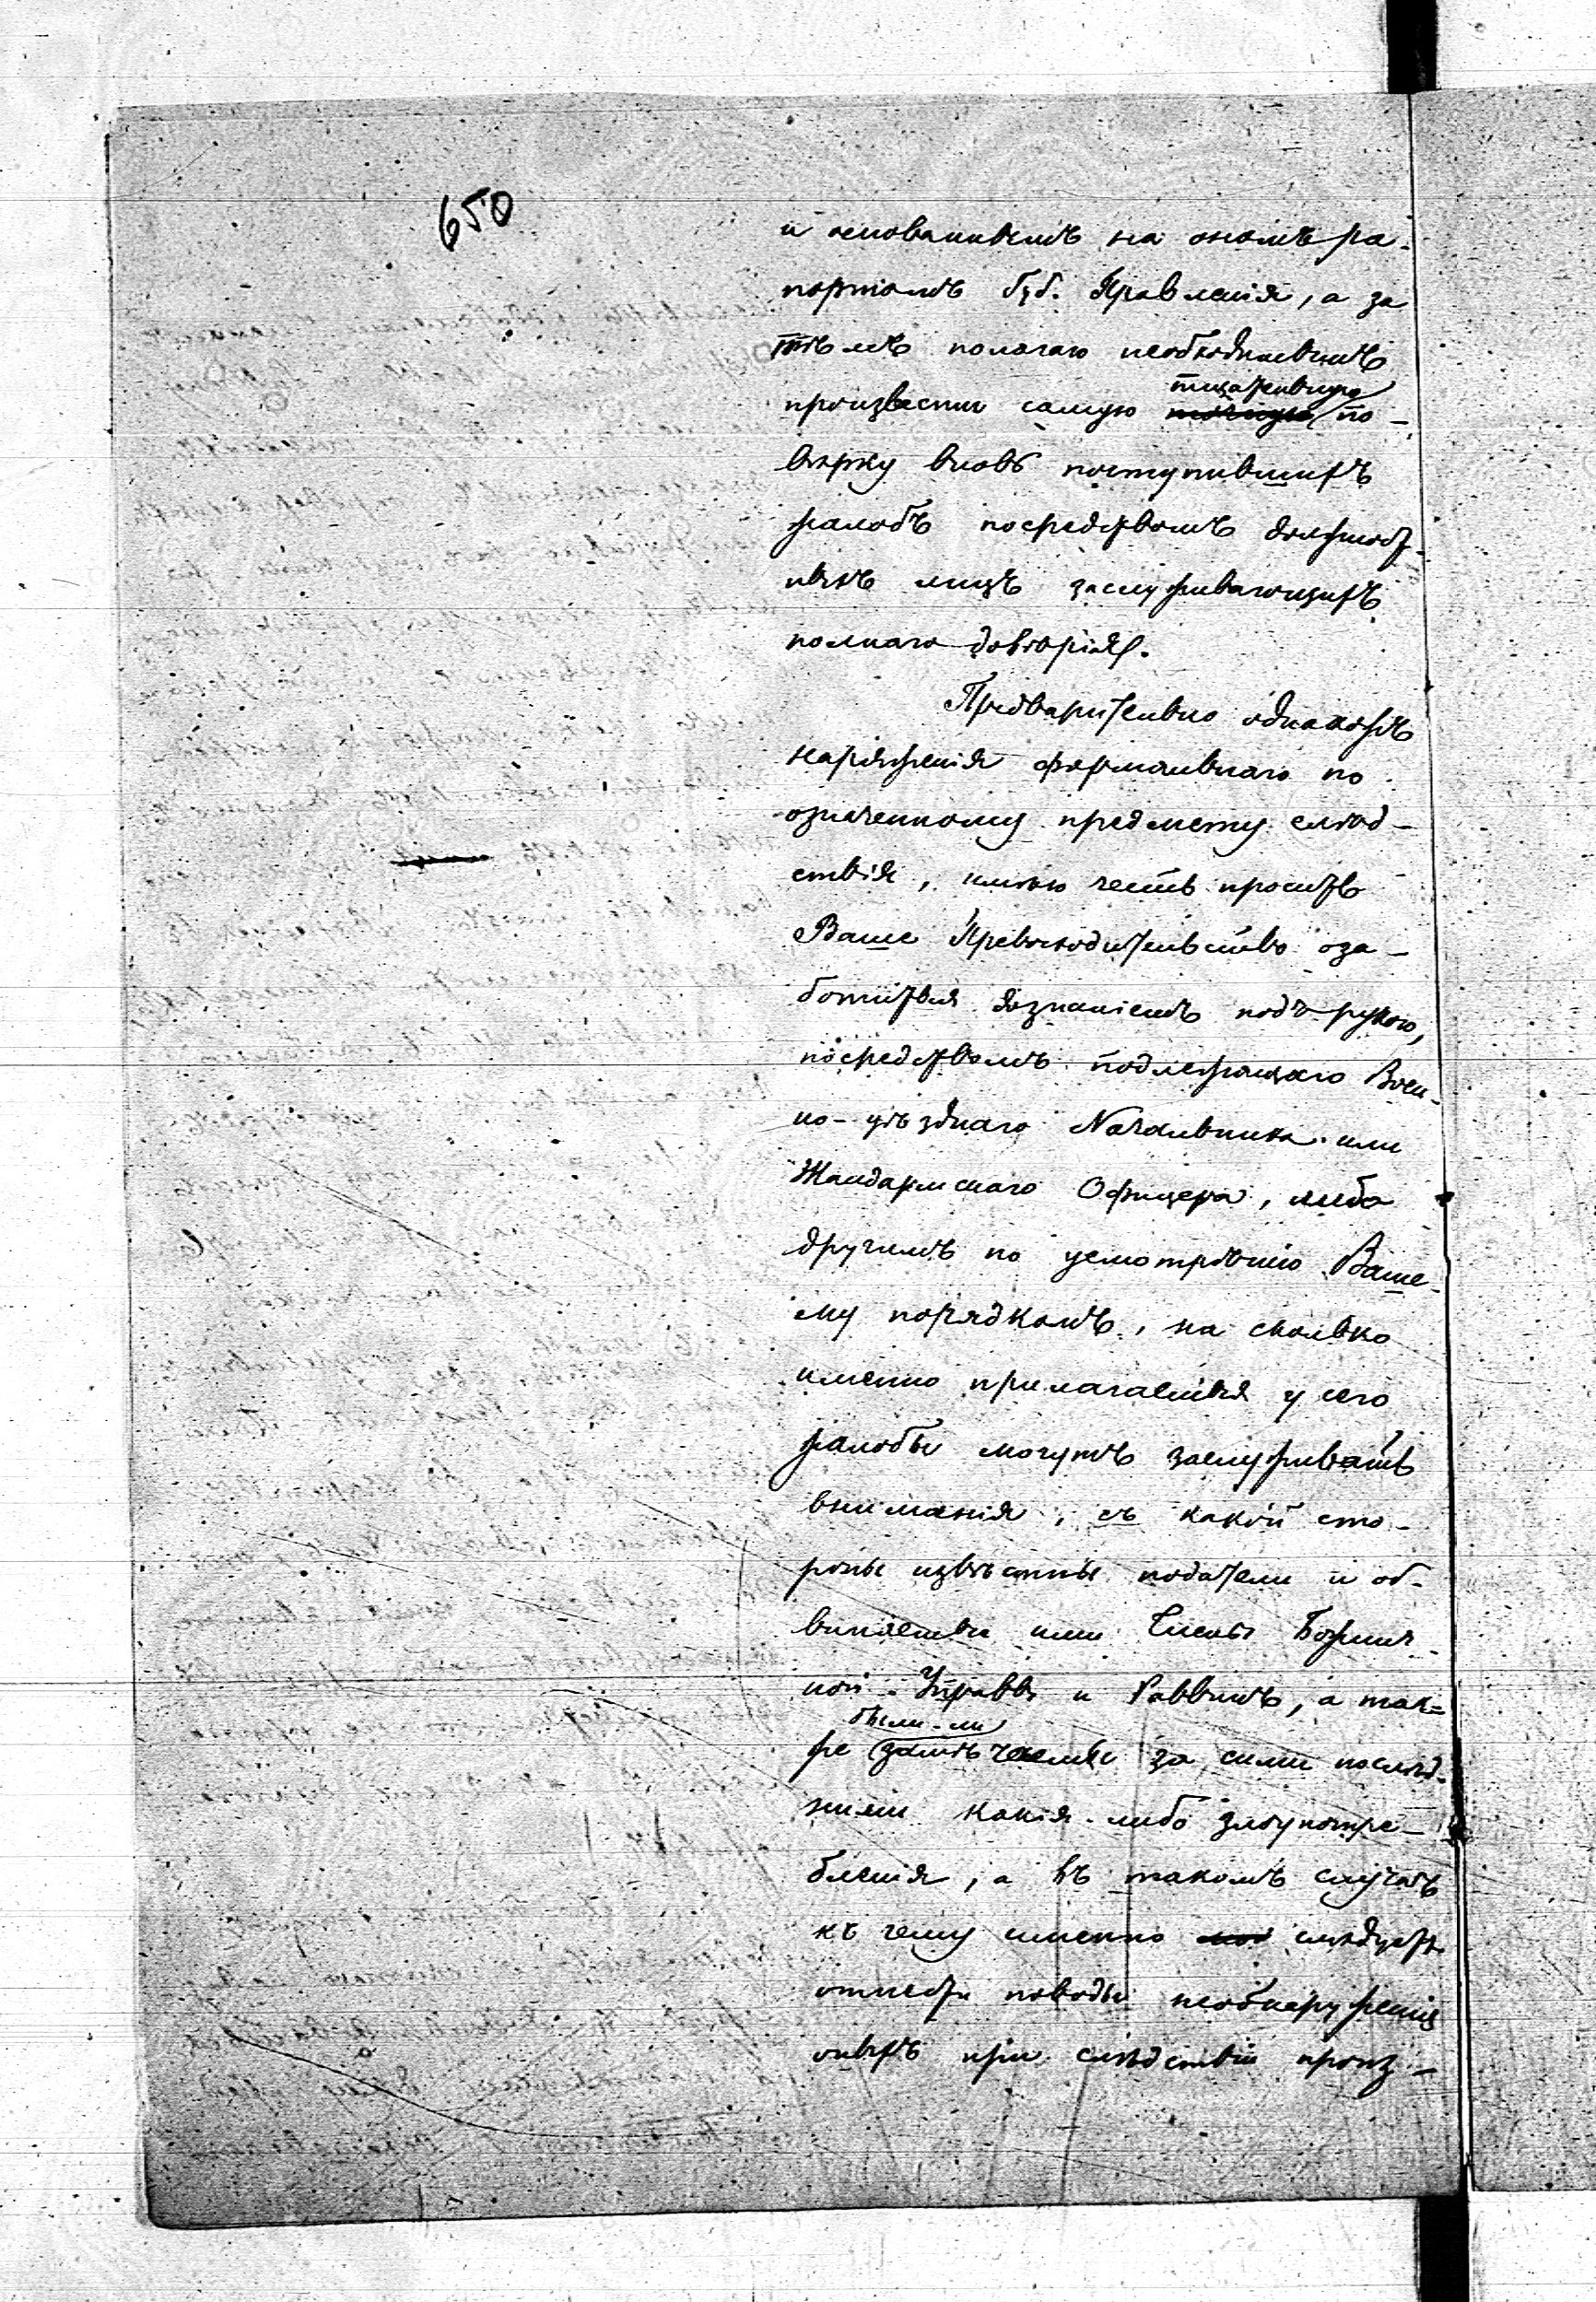 650
и основаннымъ на ономъ ра-
портомъ Губ. Правленія, а за
тѣмъ полагаю необходимымъ
произвести самую тщательную по-
вѣрку вновь поступившихъ
жалобъ посредствомъ должност-
ныхъ лицъ заслуживающихъ
полнаго довѣрія.
Предварительно однакожъ
наряженія формальнаго по
означенному предмету слѣд-
ствія, имѣю честь просить
Ваше Превосходительство оза-
ботиться дознаніемъ подъ рукою,
посредствомъ подлежащаго Воен-
но-уѣзднаго Начальника или
Жандармскаго Офицера, либо
другимъ по усмотрѣнію Ваше-
му порядкомъ, на сколько
именно прилагаемыя у сего
жалобы могутъ заслуживать
вниманія, съ какой сто-
роны извѣстны податели и об-
виняемые ими Члены Божнич-
ной Управы и Раввинъ, а так-
же были-ли замѣчаемы за сими послѣд-
ними какія-либо злоупотре-
бленія, а въ такомъ случаѣ
къ чему именно слѣдуетъ
отнести поводы необнаруженія
оныхъ при слѣдствіи произ-